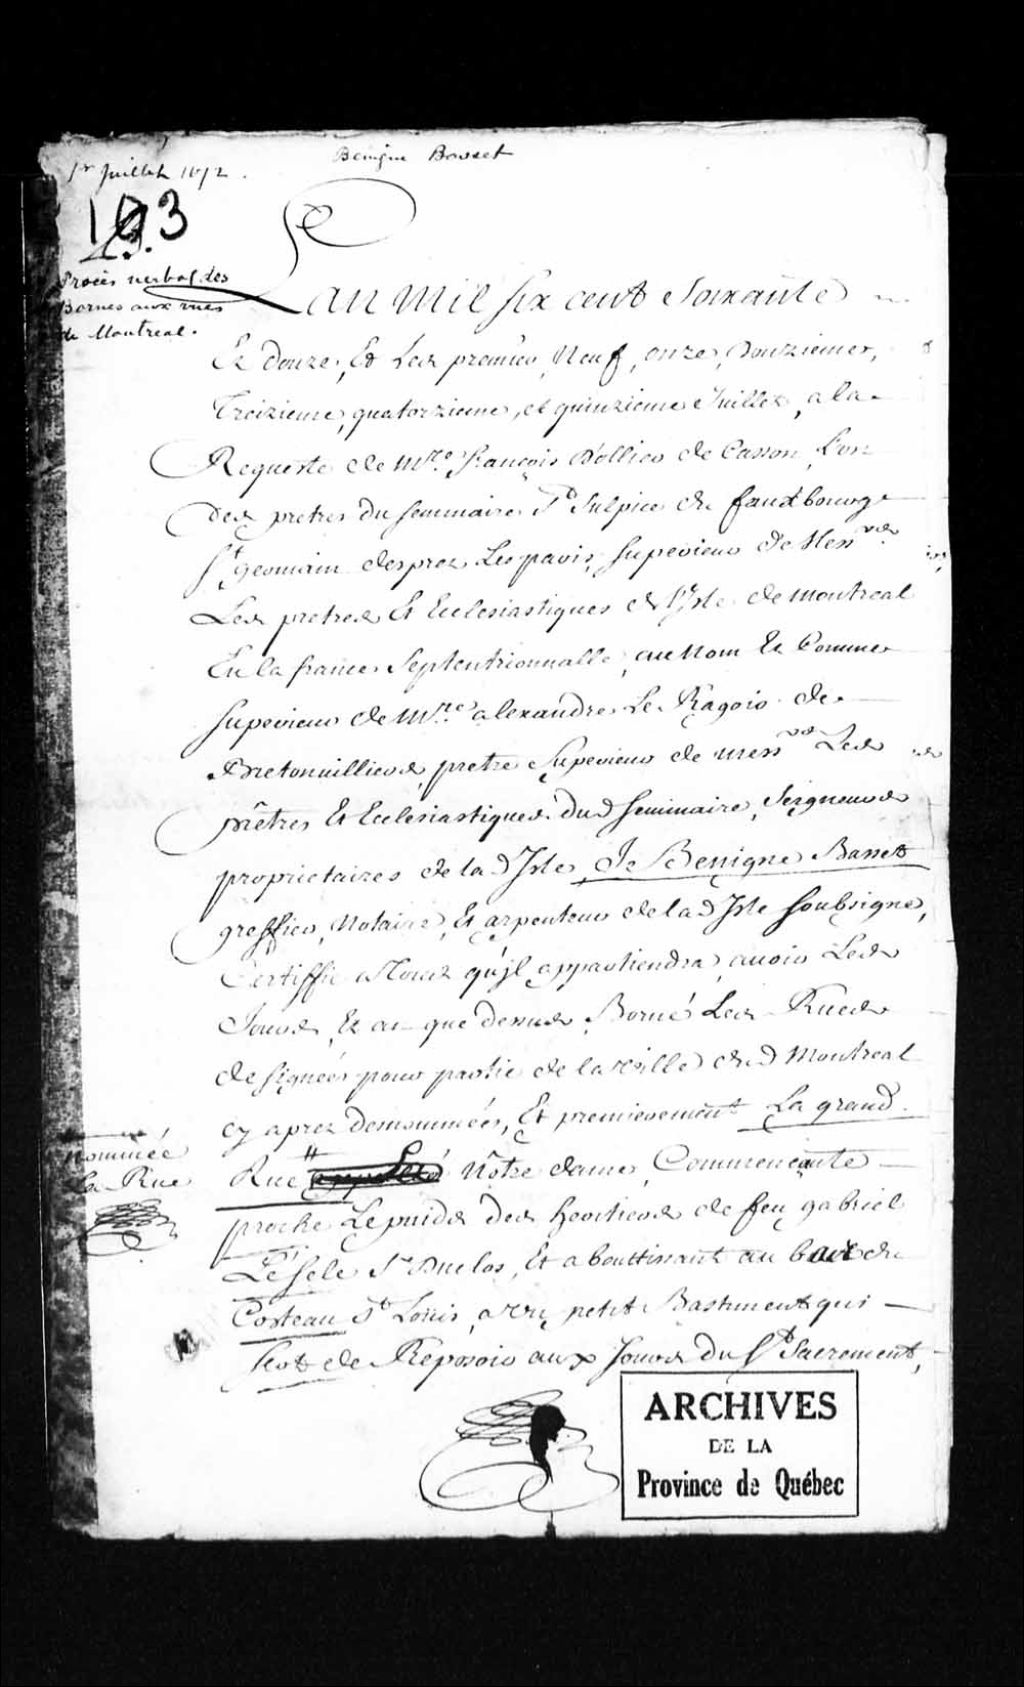 1er Juillet 1672.
Benigne Basset
193
Procès verbal des
Bornes aux rues
de Montreal.
Lan mil six cent soixante
Et douze, Et Les premier, Neuf, onze, Douziemes,
Treizieme, quatorzieme, et quinzieme Juillet, a la
Requeste de Mre. françois Dollier de Casson L'un
des pretres du seminaire St Sulpice du fauxbourg
St germain desprez Les paris, superieur de Messrs.
Les pretres Et Ecclesiastiques de l'Isle de Montreal
En la france Septentrionnalle, au Nom Et Comme
superieur de Mre. alexandre Le Ragois de
Bretonvilliers, pretre Superieur de messrs Les
prêtres Et Ecclesiastiques dud seminaire, Seigneurs
proprietaires de lad Isle, Je Benigne Basset
greffier, Notaire, Et arpenteur de lad Isle soubsigné,
Certiffie a Tous qu'jl appartiendra, auoir Les
Jours, Et an que dessus, Borné Les Rues
designées pour partie de la ville dud Montreal
cy aprez denommées, Et premierement La grand
Rue Nôtre dame, Commençante
nommée
la Rue
proche Le puids des heritiers de feu gabriel
Le sele Sr Duclos, Et abouttissant au bout du
Costeau St Loüis, a vn petit Bastiment qui
sert de Reposoir aux Jours du St Sacrement,
ARCHIVES
DE LA
Province de Québec